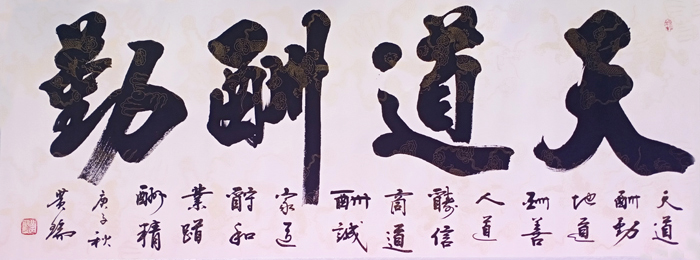 天道酬勤
天道
酬勤
地道
酬善
人道
酬信
商道
酬誠
家道
酬和
業道
酬精
庚子秋